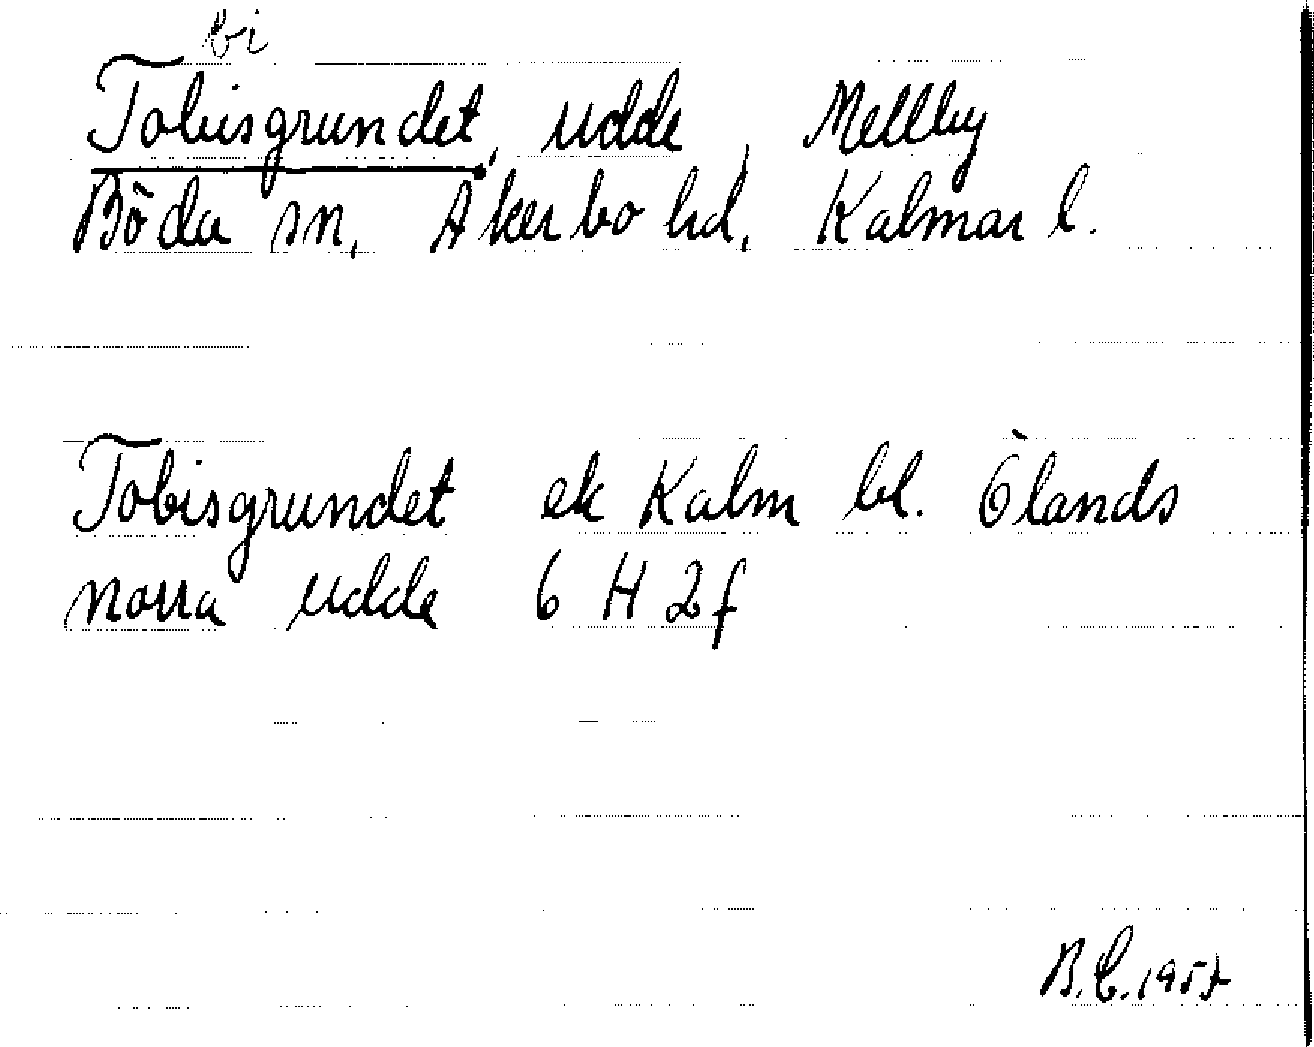 bi
Tobisgrundet, udde, Mellby
Böda sn, Åkerbo hd, Kalmar l.
Tobisgrundet ek Kalm bl. Ölands
norra udde 6 H 2f
B.E. 1957